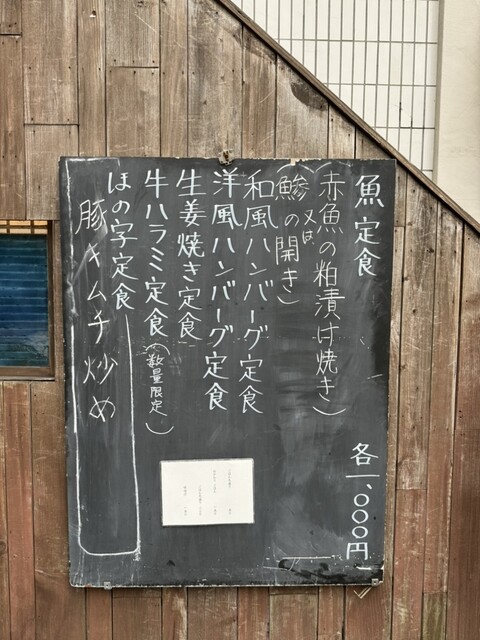 魚定食
赤魚の粕漬け焼き)
又は
鯵の開き)
和風ハンバーグ定食
洋風ハンバーグ定食
生姜焼き定食
牛ハラミ定食(数量限定)
ほの字定食
豚キムチ炒め
各一、〇〇〇円